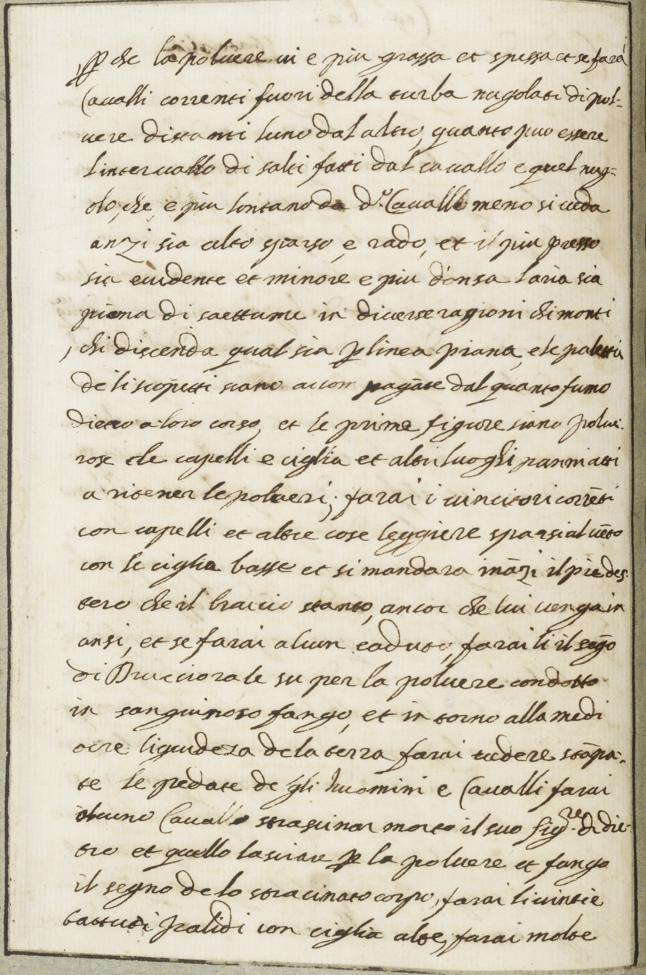 p che la poluere ui e piu grassa et spessa et se farai
Caualli correnti fuori della turba nugolati di pol-
uere distanti luno dal altro, quanto puo essere
l'interuallo di salti fatti dal cauallo e quel nug-
olo, che, e piu lontano da d.º Cauallo meno si ueda
anzi sia alto sparso, e rado, et il piu presso
sia euidente et minore e piu densa laria sia
piena di saettume in diuerse ragioni chi monti
, chi discenda qual sia p linea piana, e le palotti
de li scopetti siano acom pagñate dal quanto fumo
dietro a loro corso, et le prime figure siano polue.
rose ele capelli e ciglia et altri luoghi
a ritener le polueri; farai i uincitori corrẽti
con capelli et altre cose leggiere sparsi al uẽto
con le ciglia basse et si mandara inãzi il pie des-
tero che il braccio stanto, ancor che lui uenga in
ansi, et se farai alcun caduto, farai li il segõ
di su per la poluere condotto
in sanguinoso fango, et in torno alla medi
ocre liquideza dela terra farai uedere stãpa-
te le pedate de gli huomini e Caualli farai
alcuno Cauallo strascinar morto il suo Sig.re di die-
tro et quello lasciare p la poluere et fango
il segno de lo stracinato corpo, farai li uinti e
battuti palidi con ciglia alte, farai molte